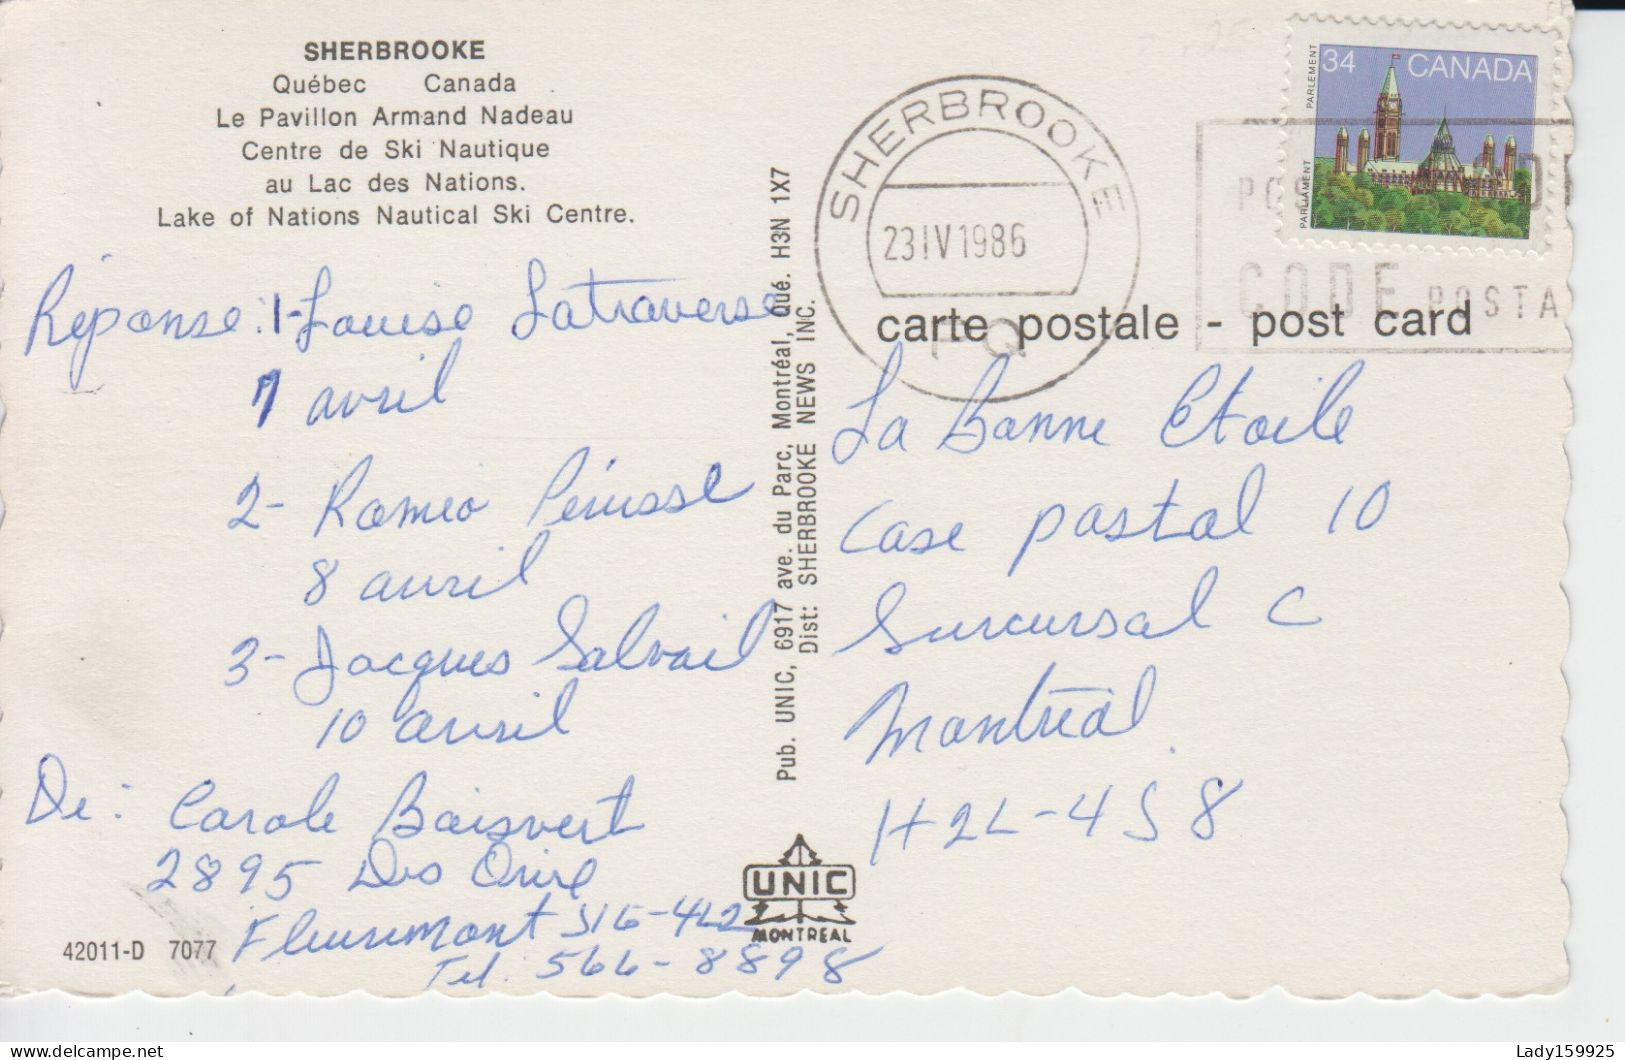 SHERBROOKE
Québec Canada
Le Pavillon Armand Nadeau
Centre de Ski Nautique
au Lac des Nations.
Lake of Nations Nautical Ski Centre.
Réponse : 1- Louise Latraverse
7 avril
2- Romeo Pérusse
8 avril
3- Jacques Salvail
10 avril
De : Carole Boisvert
2895 Des
Fleurimont J1G-4L2
Tel. 566-8898
42011-D 7077
Pub. UNIC, 6917 ave. du Parc, Montréal, Qué. H3N 1X7
Dist: SHERBROOKE NEWS INC.
UNIC
MONTREAL
SHERBROOKE
23 IV 1986
PQ
34 CANADA
PARLIAMENT PARLEMENT
CODE POSTA
carte postale - post card
La Bonne Etoile
Case postal 10
Surcursal C
Montréal
H2L-4S8
Lady159925
delcampe.net